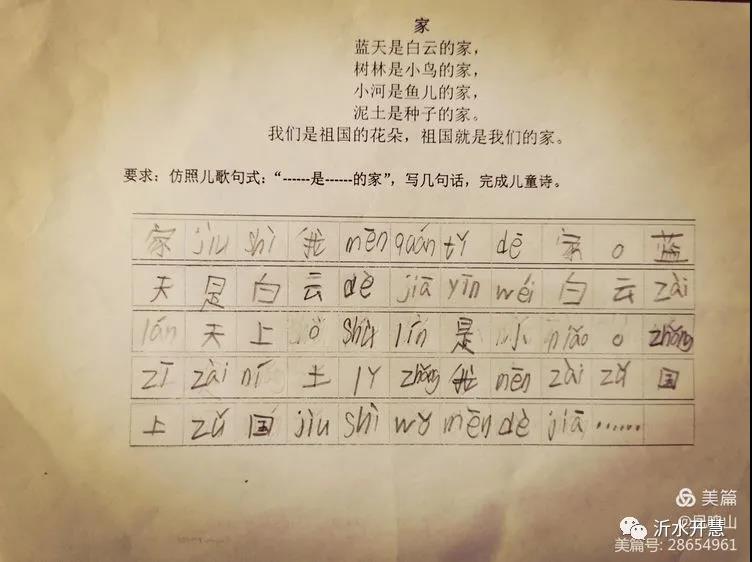 家
蓝天是白云的家，
树林是小鸟的家，
小河是鱼儿的家，
泥土是种子的家。
我们是祖国的花朵，祖国就是我们的家。
要求：仿照儿歌句式：“------是------的家”，写几句话，完成儿童诗。
家 jiù shì 我 mēn quán tǐ dē 家 。 蓝
天 是 白 云 dè jiā yīn wéi 白 云 zài
lán 天 上 。 shù lín 是 小 niǎo 。 zhǒng
zī zài ní 土 lǐ zhǒng 我 mēn zài zǔ 国
上 zǔ 国 jiù shì wǒ mēn dè jiā ……
美篇
沂水开慧
美篇号: 28654961